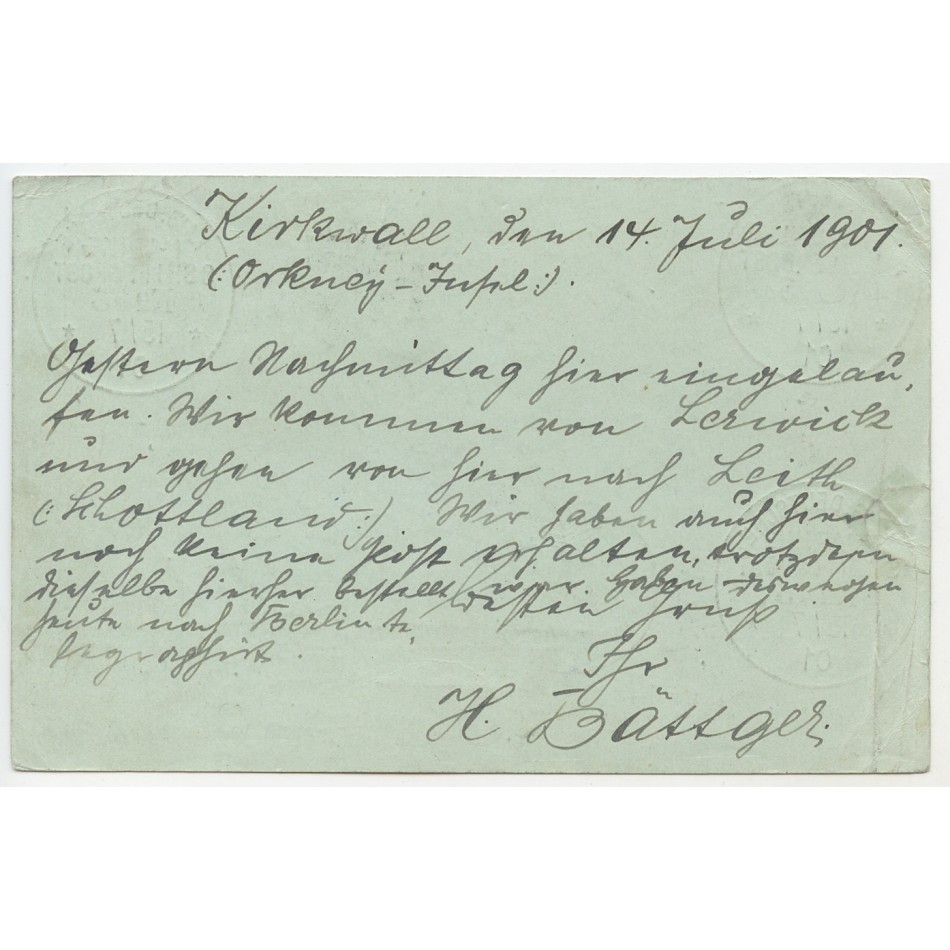 Kirkwall, den 14. Juli 1901.
(:Orkney-Insel:).
Gestern Nachmittag hier eingelau„
fen. Wir kommen von Lerwick
und gehen von hier nach Leith
(:Schottland:). Wir haben auch hier
noch keine Post erhalten, trotzdem
dieselbe hierher bestellt war. Haben deswegen
heute nach Berlin te„
legraphirt.
Besten Gruß
Ihr
H. Bättger.